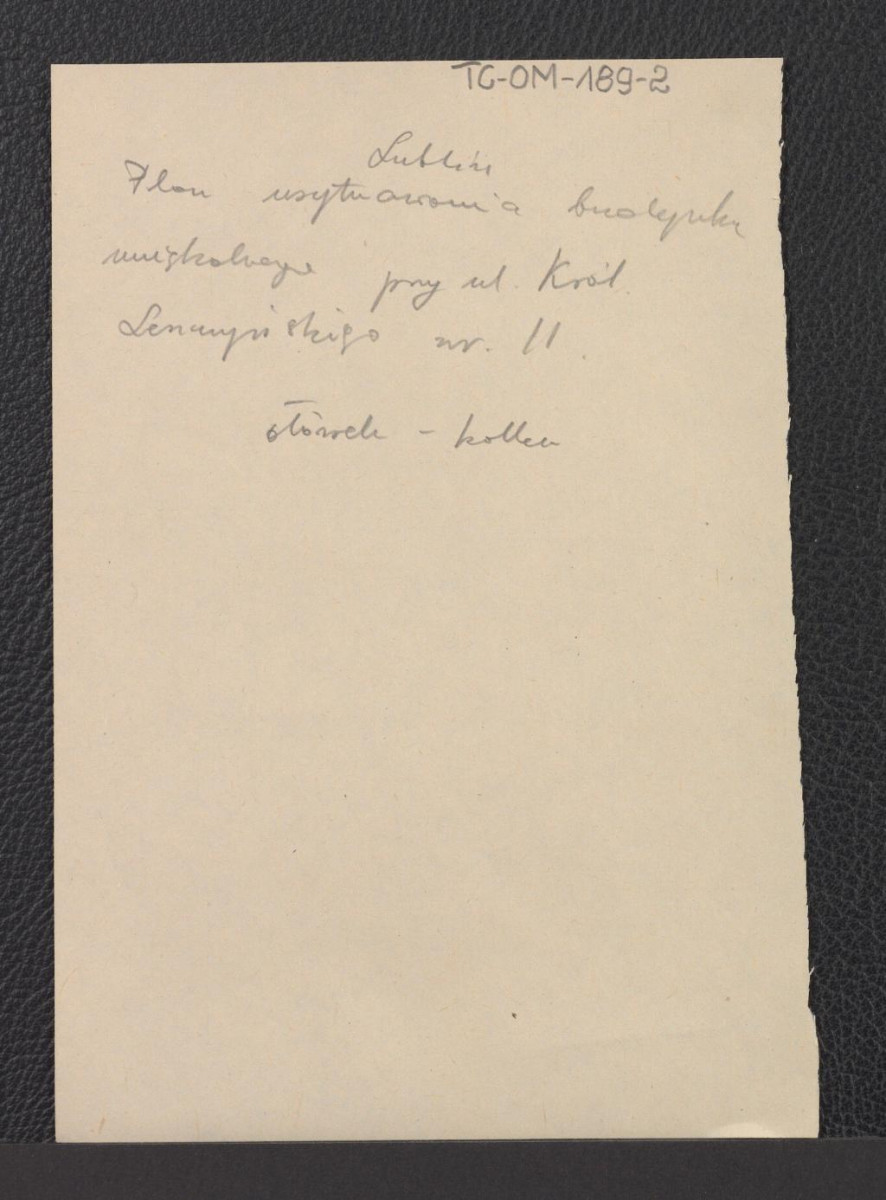 TG-OM-189-2
Lublin
Plan usytuowania budynku
mieszkalnego przy ul. Król.
Leszczyńskiego nr. 11.
ołówek - kalka